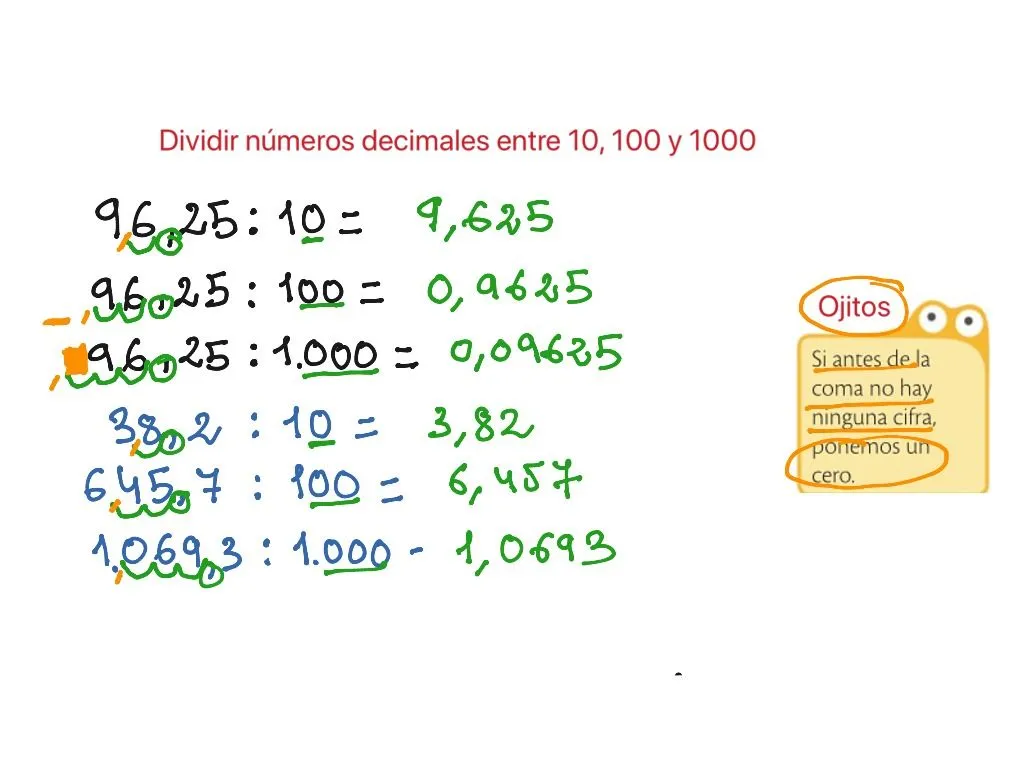 Dividir números decimales entre 10, 100 y 1000
96,25 : 10 = 9,625
96,25 : 100 = 0,9625
96,25 : 1.000 = 0,09625
38,2 : 10 = 3,82
645,7 : 100 = 6,457
1.069,3 : 1.000 - 1,0693
Ojitos
Si antes de la
coma no hay
ninguna cifra,
ponemos un
cero.